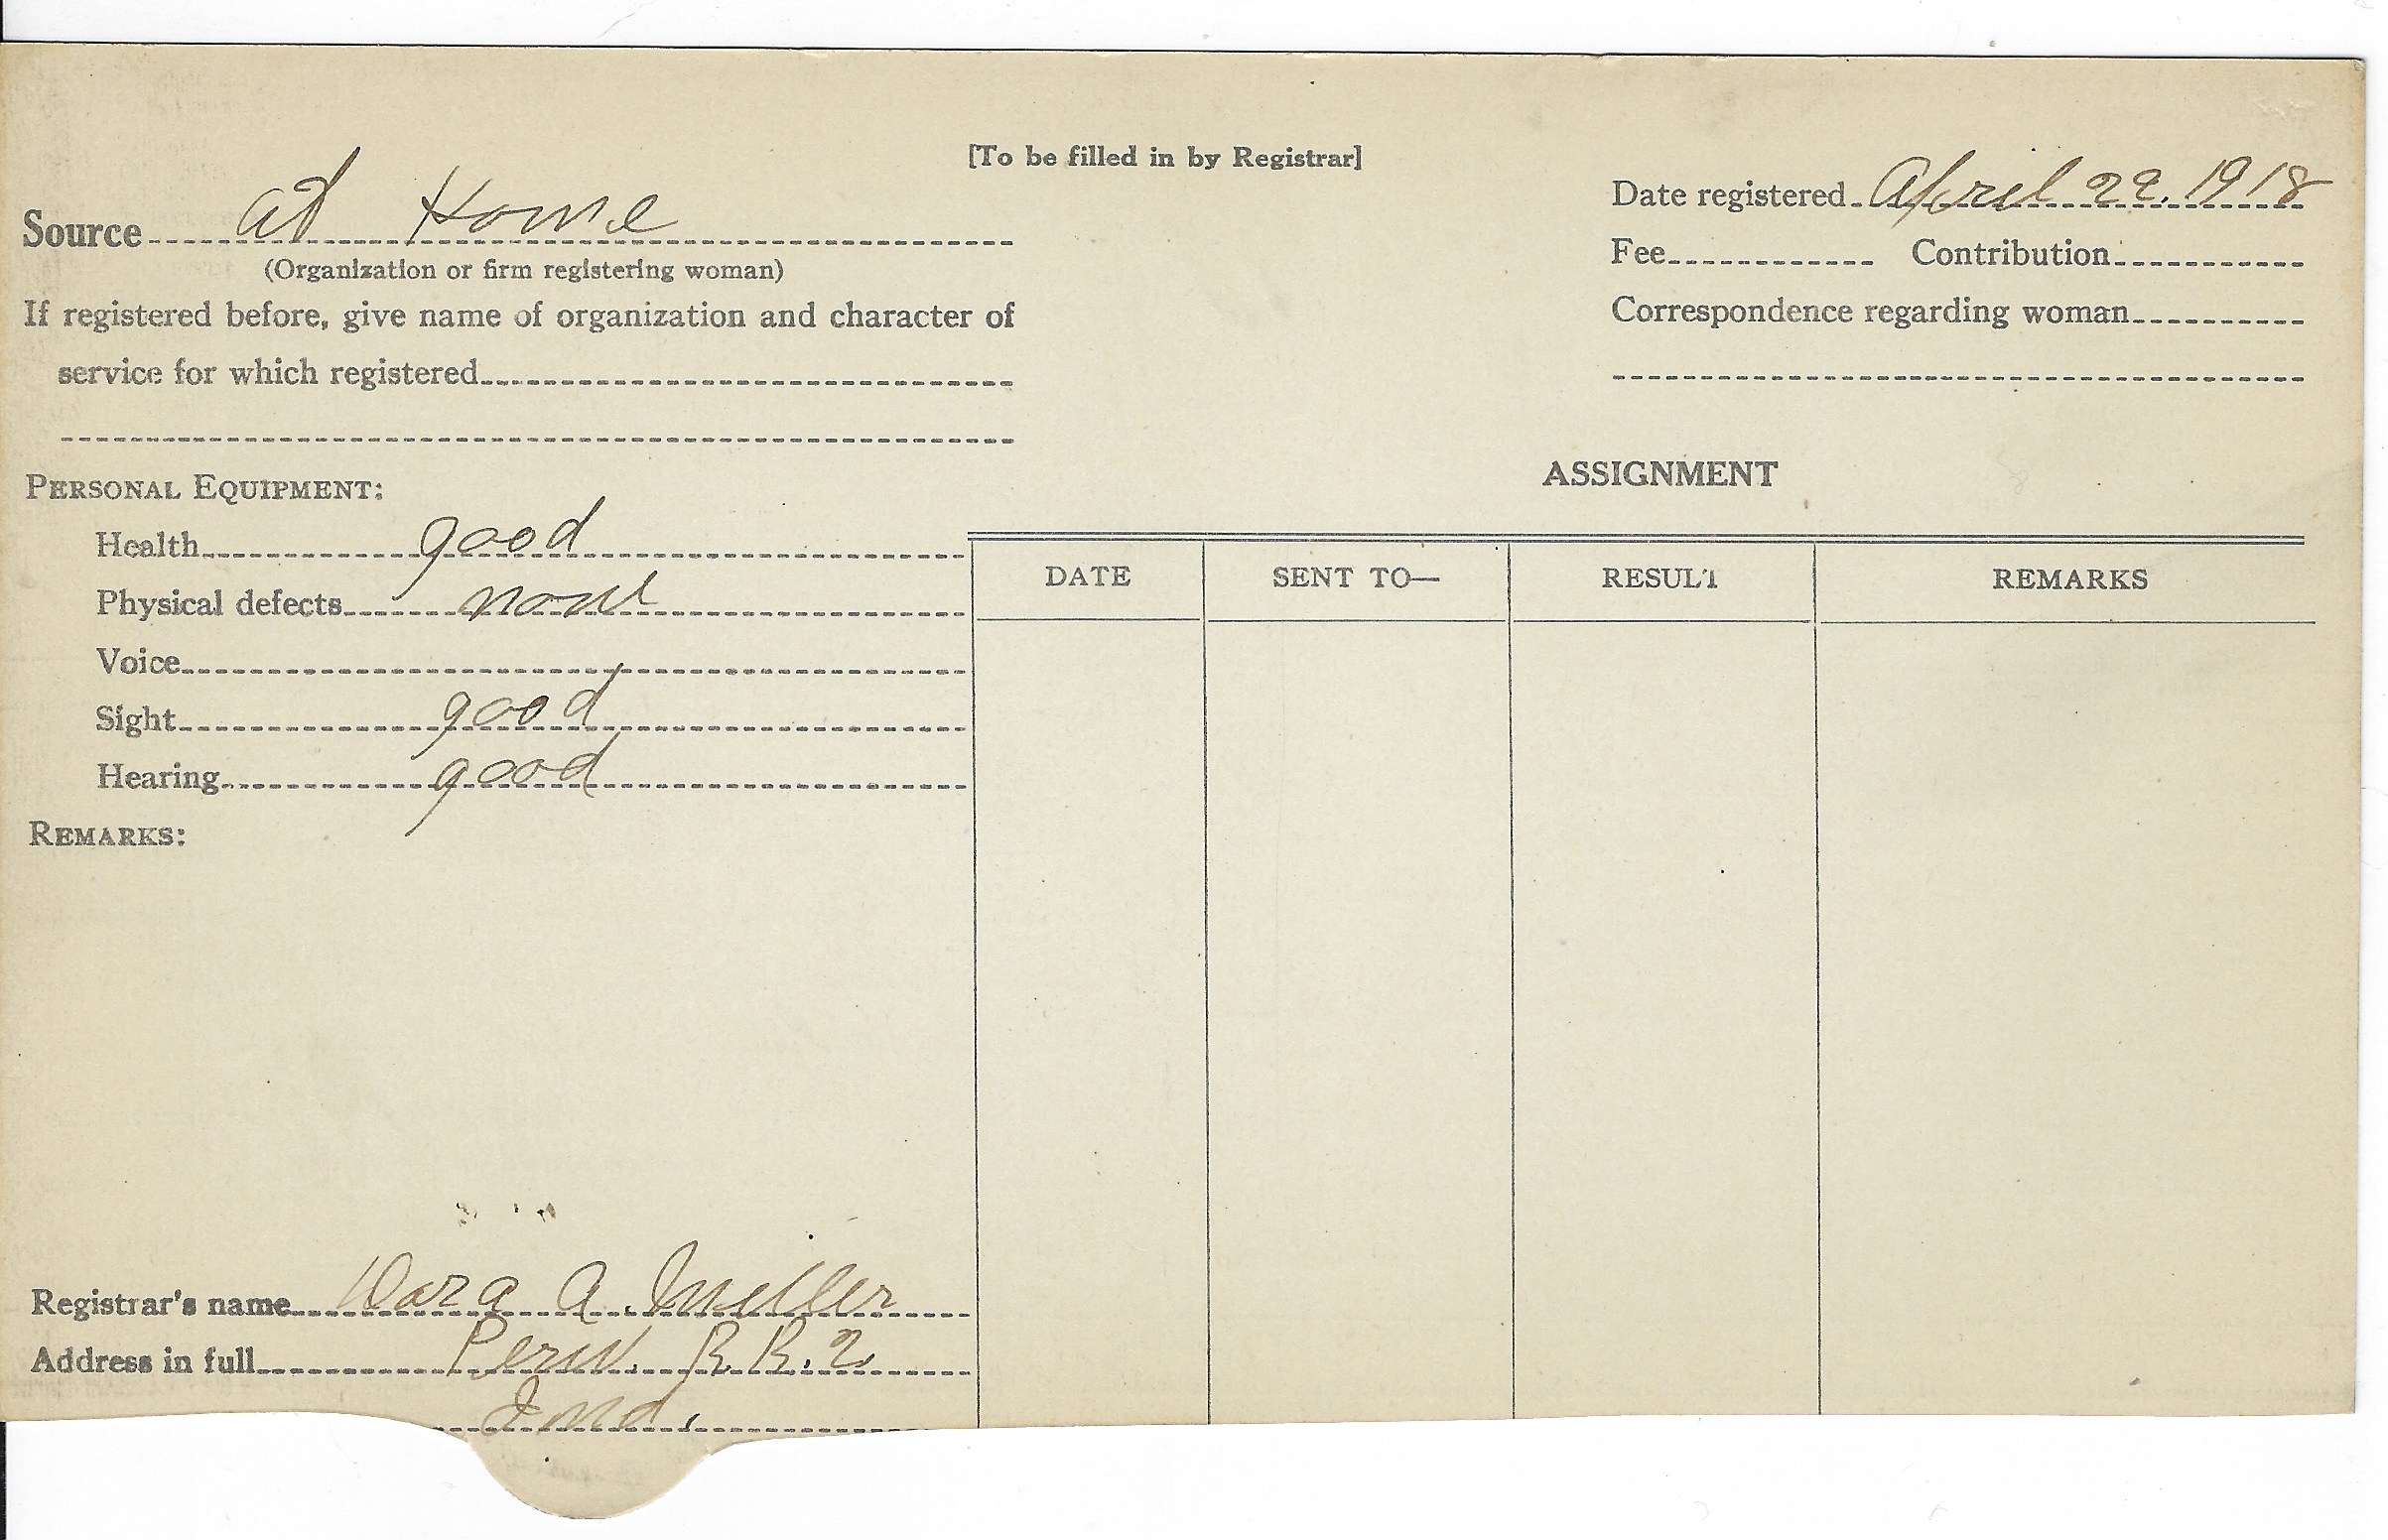 [To be filled in by Registrar]
Source at Home
(Organization or firm registering woman)
If registered before, give name of organization and character of
service for which registered
Date registered April 22, 1918
Fee Contribution
Correspondence regarding woman
PERSONAL EQUIPMENT:
Health good
Physical defects none
Voice
Sight good
Hearing good
REMARKS:
ASSIGNMENT
DATE SENT TO— RESULT REMARKS
Registrar's name A. Miller
Address in full Peru. R. R. 2
Ind.